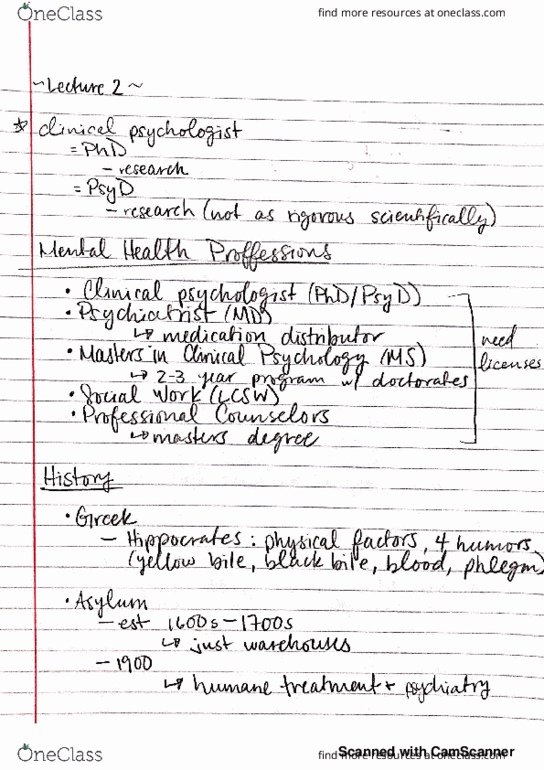 OneClass
find more resources at oneclass.com
~Lecture 2~
☆ clinical psychologist
= PhD
- research
= PsyD
- research (not as rigorous scientifically)
Mental Health Proffessions
• Clinical psychologist (PhD/PsyD)
• Psychiatrist (MD)
↳ medication distributor
• Masters in Clinical Psychology (MS)
↳ 2-3 year program w/ doctorates
• Social Work (LCSW)
• Professional Counselors
↳ masters degree
need
licenses
History
• Greek
- Hippocrates: physical factors, 4 humors
(yellow bile, black bile, blood, phlegm)
• Asylum
- est 1600s-1700s
↳ just warehouses
- 1900
↳ humane treatment + psychiatry
OneClass
find more resources at oneclass.com
Scanned with CamScanner